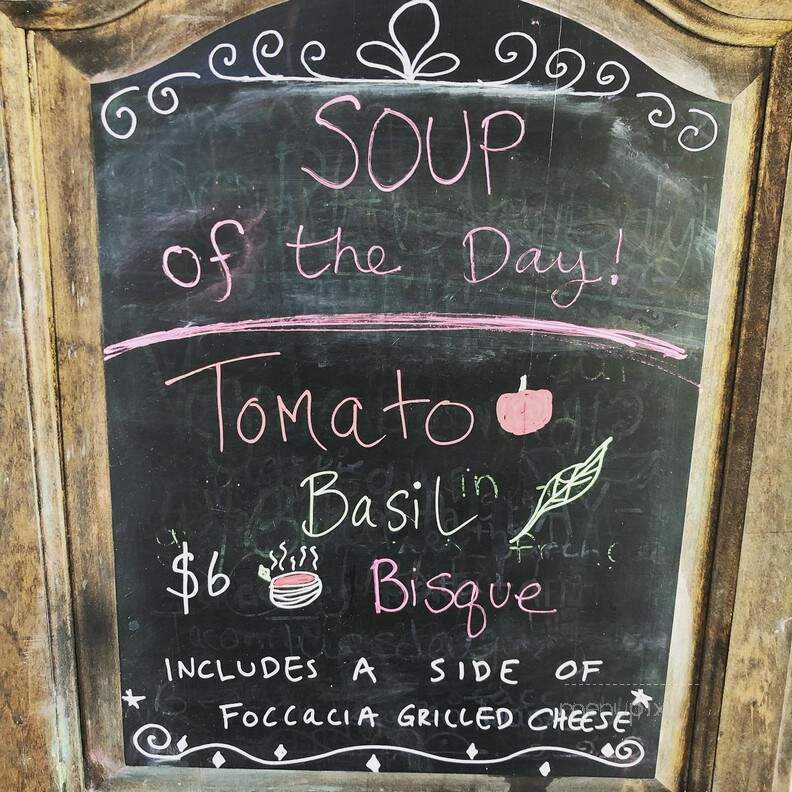 SOUP
of the Day!
Tomato
Basil
$6 Bisque
INCLUDES A SIDE OF
FOCCACIA GRILLED CHEESE
menupix